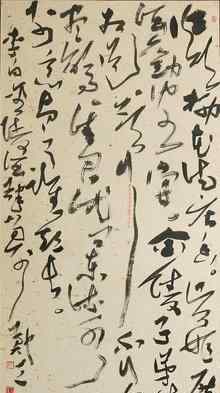 風吹柳花滿店香吳姬壓
酒勸客嘗金陵子弟來
相送欲行不行
各盡觴請君試問東流水
別意與之誰短長
李白